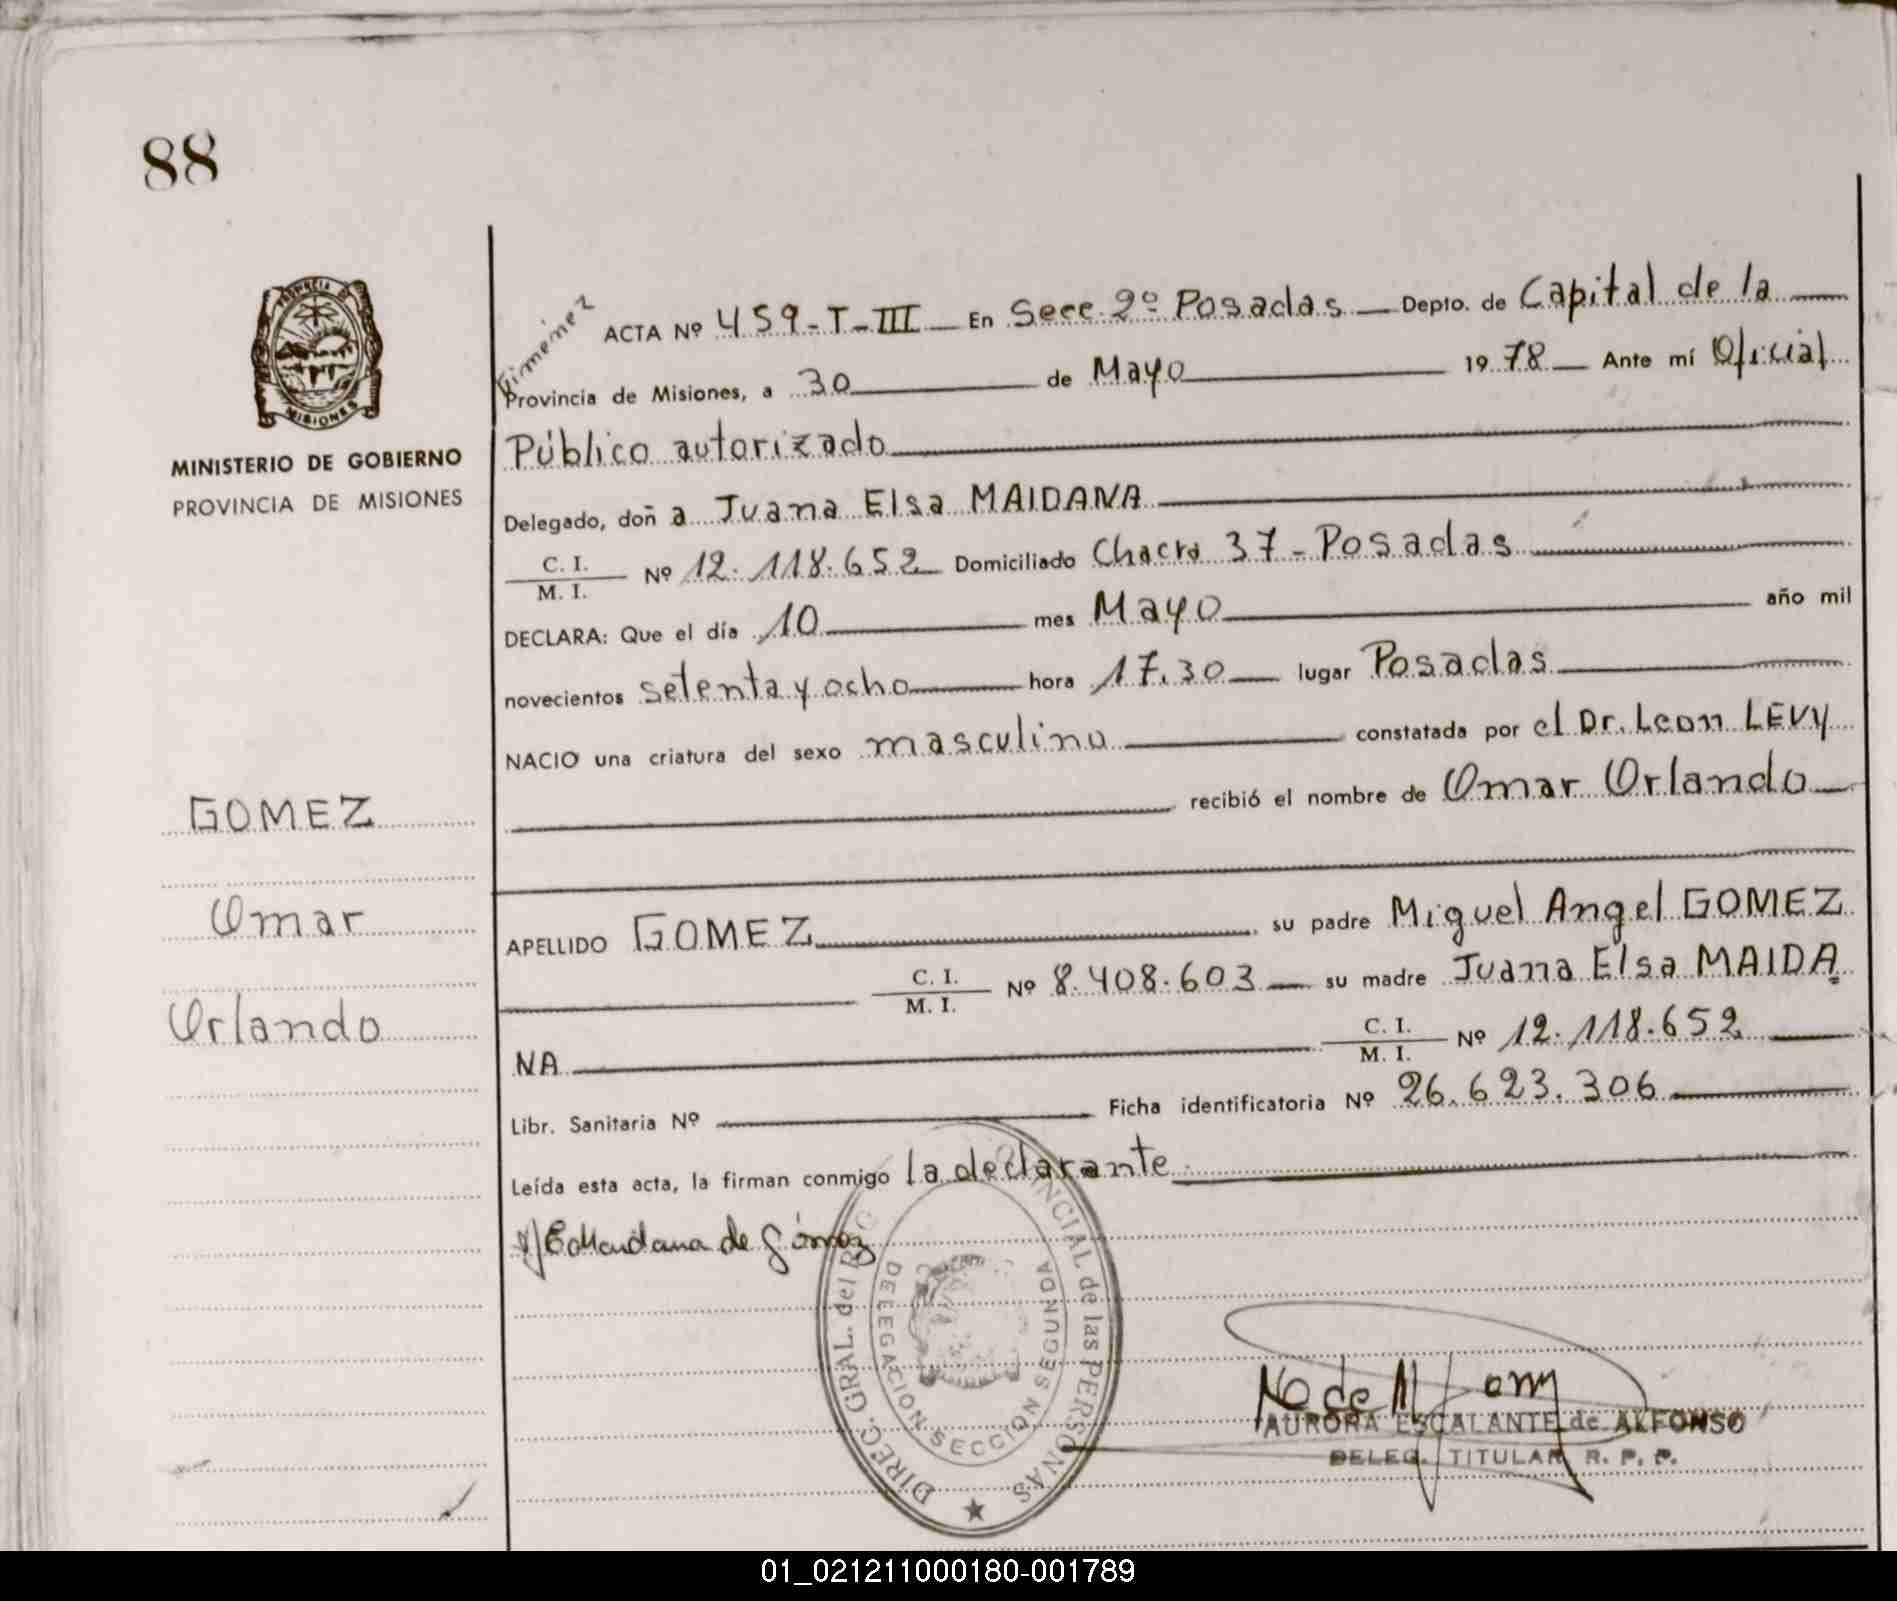 88
PROVINCIA DE
MISIONES
MINISTERIO DE GOBIERNO
PROVINCIA DE MISIONES
GOMEZ
Omar
Orlando
Gimenez
ACTA Nº 459-T-III En Secc. 2º Posadas Depto. de Capital de la
Provincia de Misiones, a 30 de Mayo 1978 Ante mí Oficial
Público autorizado
Delegado, doña Juana Elsa MAIDANA
C. I.
M. I. Nº 12.118.652 Domiciliado Chacra 37 - Posadas
DECLARA: Que el día 10 mes Mayo año mil
novecientos setenta y ocho hora 17.30 lugar Posadas
NACIO una criatura del sexo masculino constatada por el Dr. Leon LEVY
recibió el nombre de Omar Orlando
APELLIDO GOMEZ, su padre Miguel Angel GOMEZ
C. I.
M. I. Nº 8.408.603 su madre Juana Elsa MAIDA
NA C. I.
M. I. Nº 12.118.652
Libr. Sanitaria Nº Ficha identificatoria Nº 26.623.306
Leída esta acta, la firman conmigo la declarante
Maidana de Gómez
DIREC. GRAL. del REG. PROVINCIAL de las PERSONAS
DELEGACION SECCION SEGUNDA
AURORA ESCALANTE de ALFONSO
DELEG. TITULAR R. P. P.
01_021211000180-001789